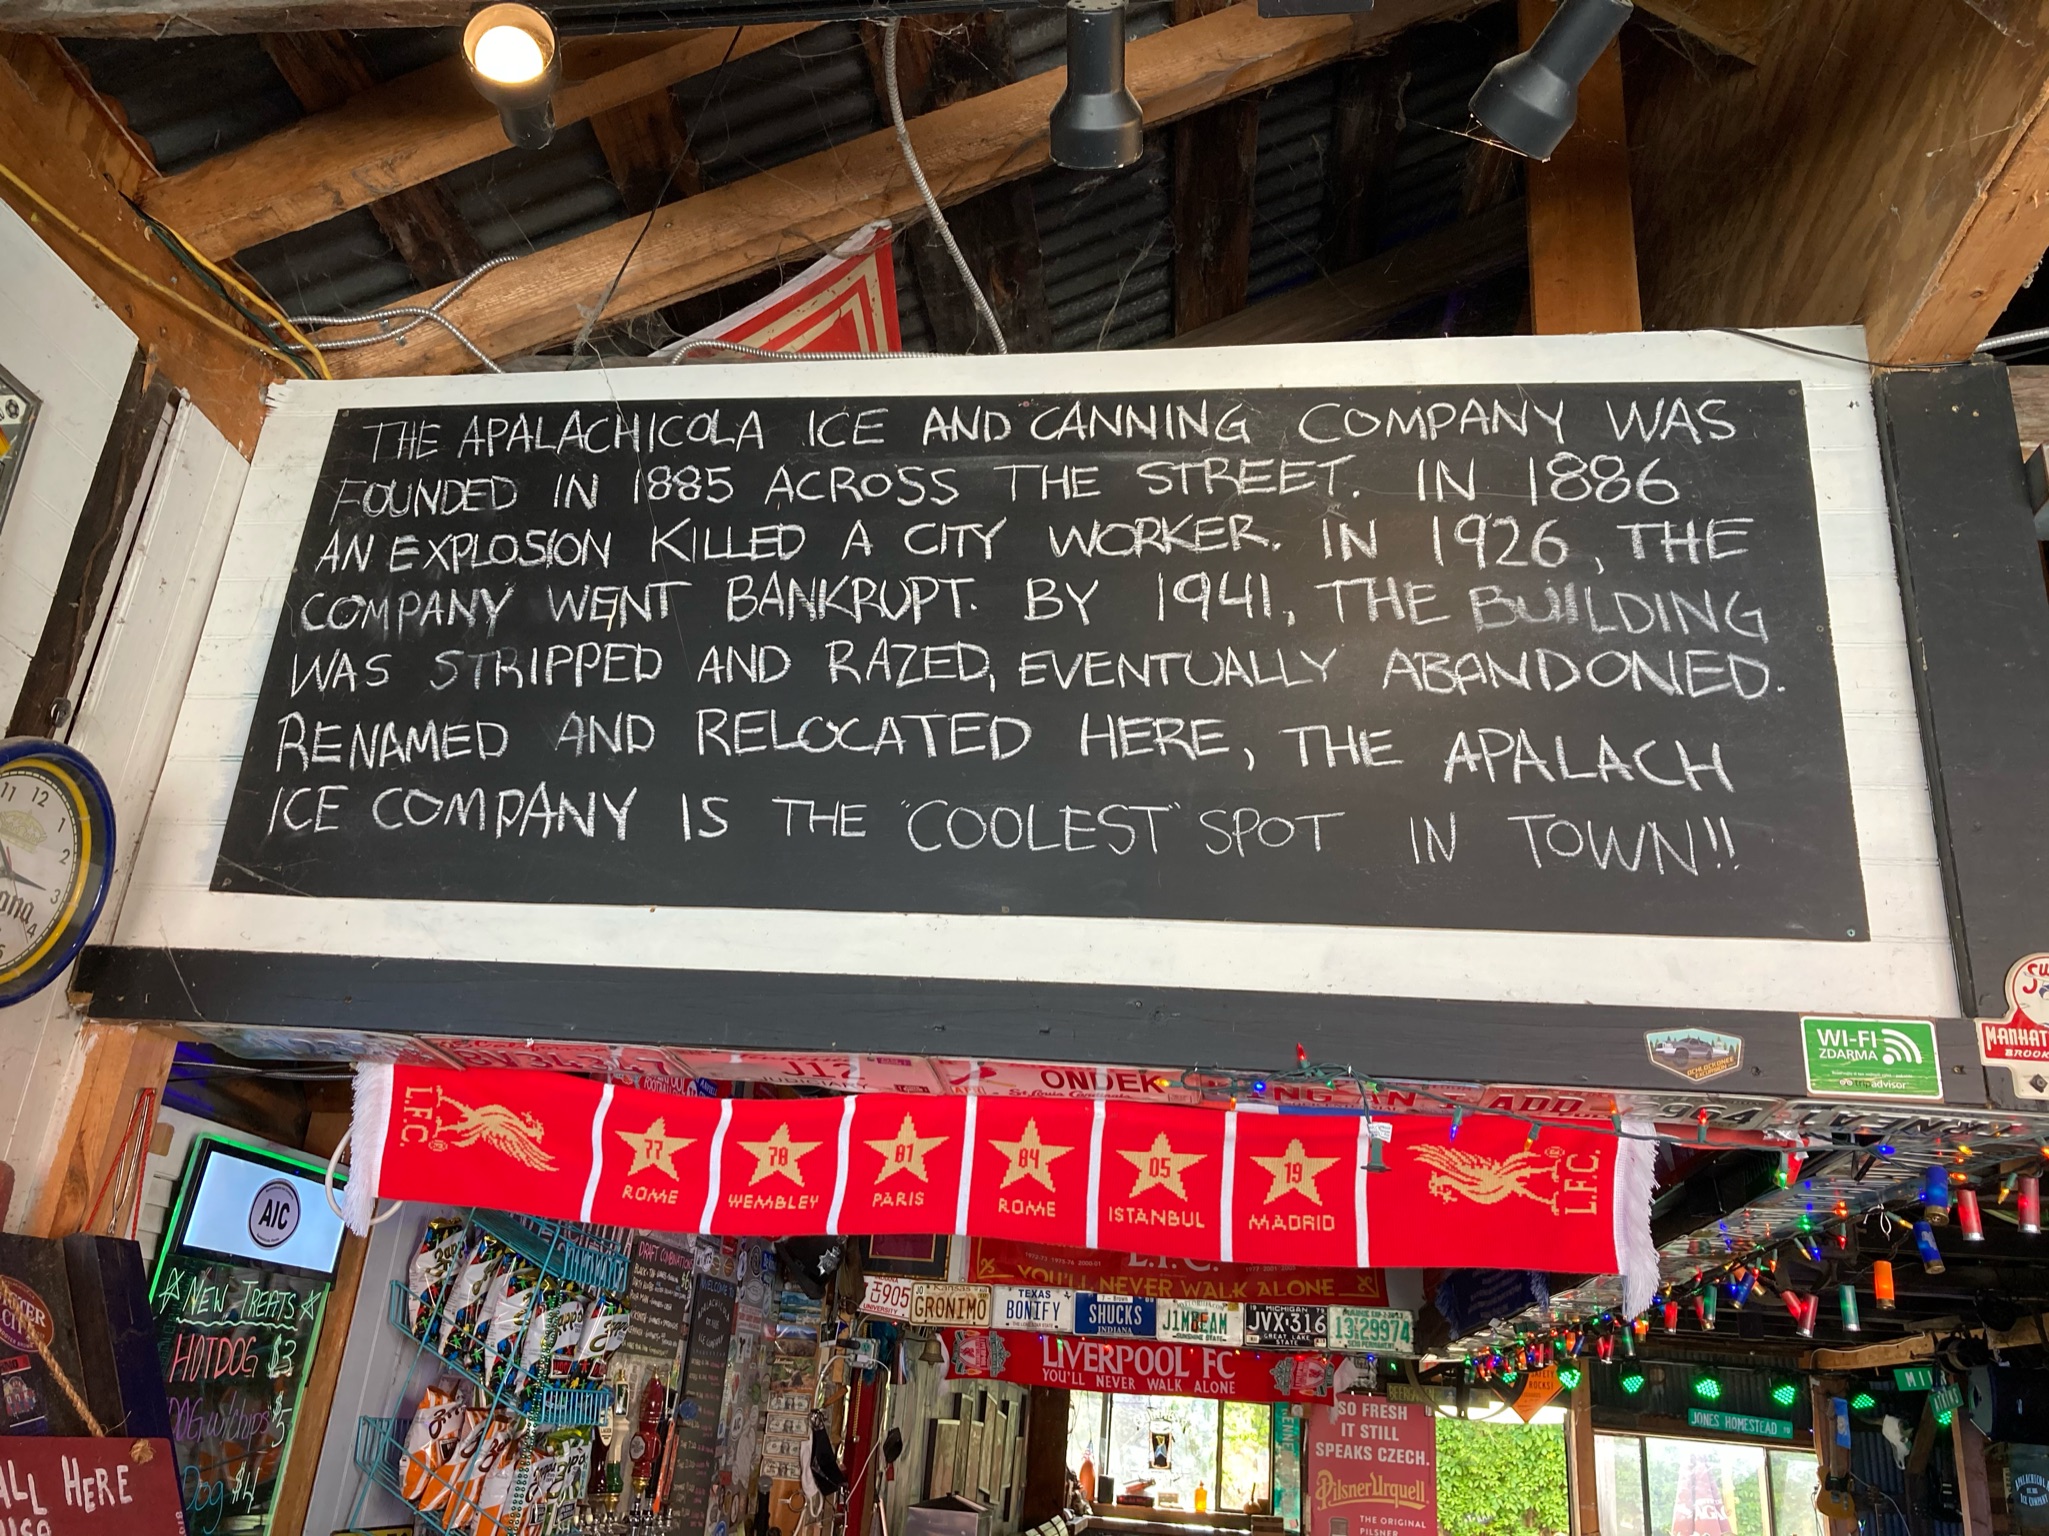 THE APALACHICOLA ICE AND CANNING COMPANY WAS
FOUNDED IN 1885 ACROSS THE STREET. IN 1886
AN EXPLOSION KILLED A CITY WORKER. IN 1926, THE
COMPANY WENT BANKRUPT. BY 1941, THE BUILDING
WAS STRIPPED AND RAZED, EVENTUALLY ABANDONED.
RENAMED AND RELOCATED HERE, THE APALACH
ICE COMPANY IS THE "COOLEST" SPOT IN TOWN!!
11 12 1 2 3 4
WI-FI
ZDARMA
tripadvisor
MANHAT
BROOK
ONDEK
L.F.C.
77
ROME
78
WEMBLEY
81
PARIS
84
ROME
05
ISTANBUL
19
MADRID
L.F.C.
AIC
NEW TREATS
HOTDOG $3
DOG w/chips $5
Dog $4
ALL HERE
L.F.C.
YOU'LL NEVER WALK ALONE
905
UNIVERSITY
GRONIMO
TEXAS
BONIFY
SHUCKS
INDIANA
J1MBEAM
SUNSHINE STATE
MICHIGAN
JVX·316
GREAT LAKE STATE
LIVERPOOL FC
YOU'LL NEVER WALK ALONE
SO FRESH
IT STILL
SPEAKS CZECH.
PilsnerUrquell
THE ORIGINAL
PILSNER
JONES HOMESTEAD